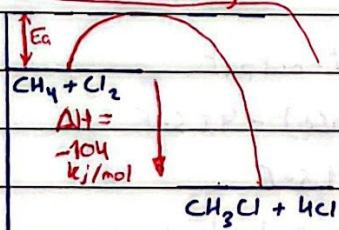 Ea
CH₄ + Cl₂
ΔH =
-104
kj/mol
CH₃Cl + HCl